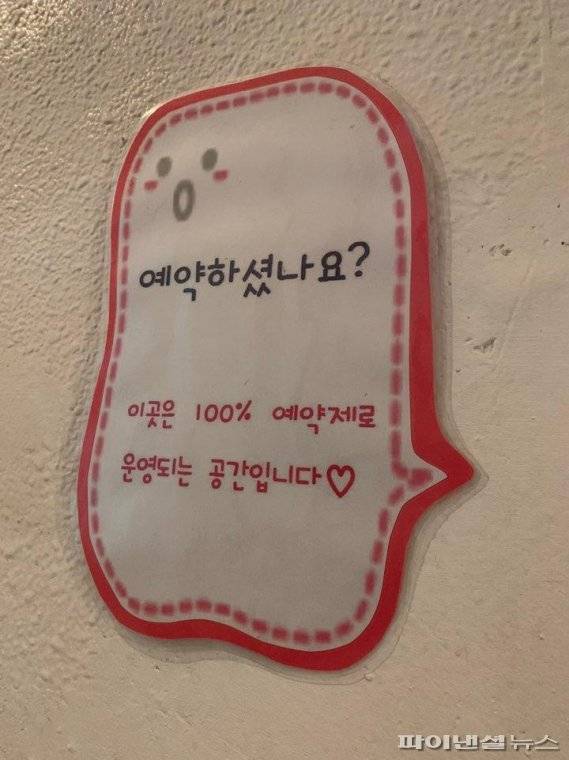 예약하셨나요?
이곳은 100% 예약제로
운영되는 공간입니다♡
파이낸셜뉴스